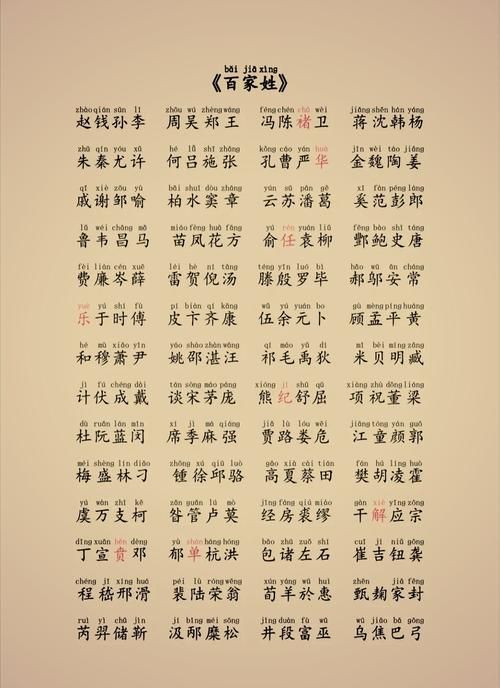 bǎi jiā xìng
《百家姓》
zhào qián sūn lǐ zhōu wú zhèng wáng féng chén chǔ wèi jiǎng shěn hán yáng
赵钱孙李 周吴郑王 冯陈褚卫 蒋沈韩杨
zhū qín yóu xǔ hé lǚ shī zhāng kǒng cáo yán huà jīn wèi táo jiāng
朱秦尤许 何吕施张 孔曹严华 金魏陶姜
qī xiè zōu yù bǎi shuǐ dòu zhāng yún sū pān gě xī fàn péng láng
戚谢邹喻 柏水窦章 云苏潘葛 奚范彭郎
lǔ wéi chāng mǎ miáo fèng huā fāng yú rén yuán liǔ fēng bào shǐ táng
鲁韦昌马 苗凤花方 俞任袁柳 酆鲍史唐
fèi lián cén xuē léi hè ní tāng téng yīn luó bì hǎo wū ān cháng
费廉岑薛 雷贺倪汤 滕殷罗毕 郝邬安常
yuè yú shí fù pí biàn qí kāng wǔ yú yuán bǔ gù mèng píng huáng
乐于时傅 皮卞齐康 伍余元卜 顾孟平黄
hé mù xiāo yǐn yáo shào zhàn wāng qí máo yǔ dí mǐ bèi míng zāng
和穆萧尹 姚邵湛汪 祁毛禹狄 米贝明臧
jì fú chéng dài tán sòng máo páng xióng jǐ shū qū xiàng zhù dǒng liáng
计伏成戴 谈宋茅庞 熊纪舒屈 项祝董梁
dù ruǎn lán mǐn xí jì má qiáng jiǎ lù lóu wēi jiāng tóng yán guō
杜阮蓝闵 席季麻强 贾路娄危 江童颜郭
méi shèng lín diāo zhōng xú qiū luò gāo xià cài tián fán hú líng huò
梅盛林刁 锺徐邱骆 高夏蔡田 樊胡凌霍
yú wàn zhī kē zǎn guǎn lú mò jīng fáng qiú miào gān xiè yīng zōng
虞万支柯 昝管卢莫 经房裘缪 干解应宗
dīng xuān bēn dèng yù shàn háng hóng bāo zhū zuǒ shí cuī jí niǔ gōng
丁宣贲邓 郁单杭洪 包诸左石 崔吉钮龚
chéng jī xíng huá péi lù róng wēng xún yáng yū huì zhēn qū jiā fēng
程嵇邢滑 裴陆荣翁 荀羊於惠 甄麴家封
ruì yì chǔ jìn jí bǐng mí sōng jǐng duàn fù wū wū jiāo bā gōng
芮羿储靳 汲邴糜松 井段富巫 乌焦巴弓